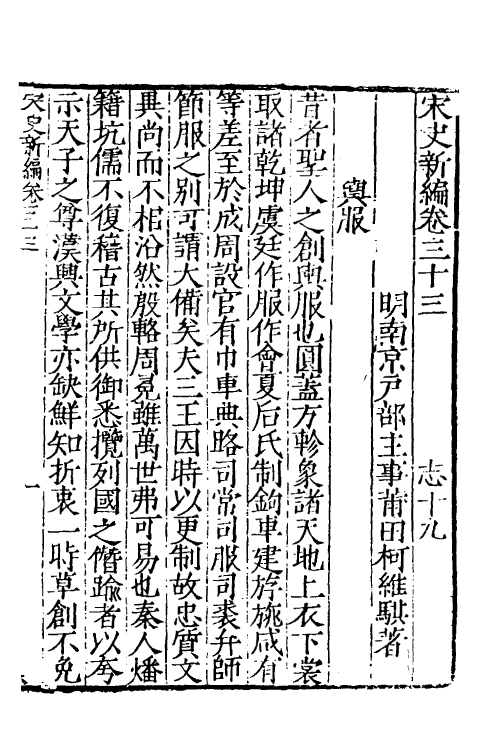 宋史新編卷三十三　志十九
明南京戶部主事莆田柯維騏著
輿服
昔者聖人之創輿服也圓蓋方軫象諸天地上衣下裳
取諸乾坤虞廷作服作會夏后氏制鉤車建旂旐咸有
等差至於成周設官有巾車典路司常司服司裘弁師
節服之別可謂大備矣夫三王因時以更制故忠質文
異尚而不相沿然殷輅周冕雖萬世弗可易也秦人燔
籍坑儒不復稽古其所供御悉攬列國之僭踰者以夸
示天子之尊漢興文學亦缺鮮知折衷一時草創不免
宋史新編卷三三
一